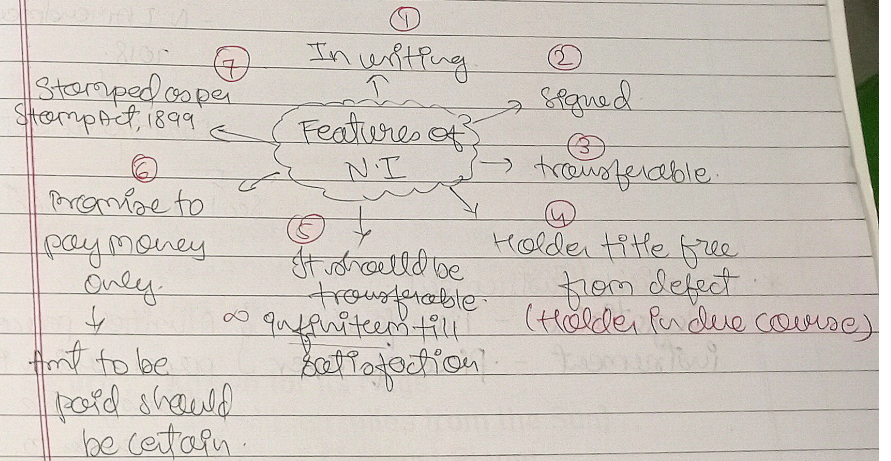 Features of
N.I
1
In writing
2
signed
3
transferable.
4
Holder title free
from defect.
(Holder in due course)
5
It should be
transferable.
∞ infiniteem till
satisfaction
6
Promise to
pay money
only.
Amt to be
paid should
be certain.
7
Stamped as per
Stamp Act, 1899